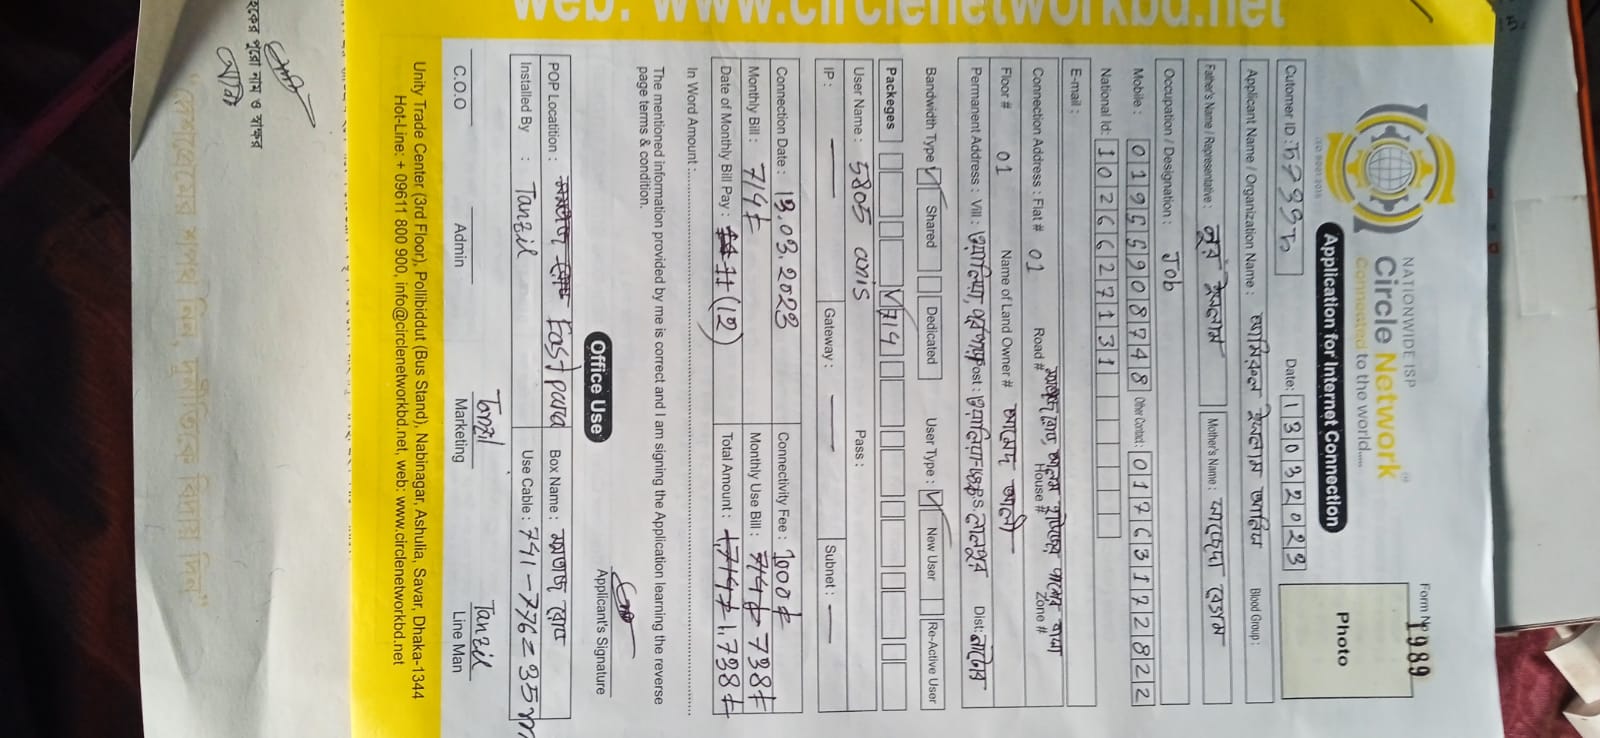 NATIONWIDE ISP
Circle Network
Connected to the world.....
ISO 9001:2015
Form No 1989
Application for Internet Connection
Photo
Cutomer ID: Date: 13032023
Applicant Name / Organization Name : আমিরুল ইসলাম Blood Group :
Father's Name / Representative : নুর ইসলাম Mother's Name : বেগম
Occupation / Designation : Job
Mobile : 01955908748 Other Contact : 01763172822
National Id: 1026627131
E-mail :
Connection Address : Flat # 01 Road # House # Zone #
Floor # 01 Name of Land Owner # আমেদ আলী
Permanent Address : Vill : Post : P.S: লালপুর Dist: নাটোর
Bandwidth Type Shared Dedicated User Type : New User Re-Active User
Packeges 714
User Name : 5805 anis Pass :
IP : Gateway : Subnet :
Connection Date : 13.03.2023 Connectivity Fee : 1000৳
Monthly Bill : 714৳ Monthly Use Bill : 714৳ 738৳
Date of Monthly Bill Pay : (12) Total Amount : 1,714৳ 1,738৳
In Word Amount :
The mentioned information provided by me is correct and I am signing the Application learning the reverse
page terms & condition.
Applicant's Signature
Office Use
POP Locatition : East para Box Name :
Installed By : Tanzil Use Cable : 741-776=35m
Tanzil Tanzil
C.O.O Admin Marketing Line Man
Unity Trade Center (3rd Floor), Pollibiddut (Bus Stand), Nabinagar, Ashulia, Savar, Dhaka-1344
Hot-Line: + 09611 800 900, info@circlenetworkbd.net, web: www.circlenetworkbd.net
web: www.circlenetworkbd.net
পুরো নাম ও স্বাক্ষর
দেশপ্রেমের শপথ নিন, দুর্নীতিকে বিদায় দিন"